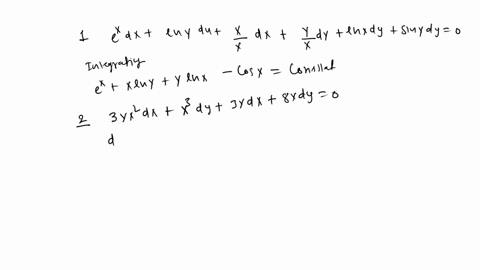 1 e^x dx + ln y du + x/x dx + y/x dy + ln x dy + sin y dy = 0
Integratiy
e^x + x ln y + y ln x - Cos x = Constat
2 3yx^2 dx + x^3 dy + 3y dx + 8x dy = 0
d